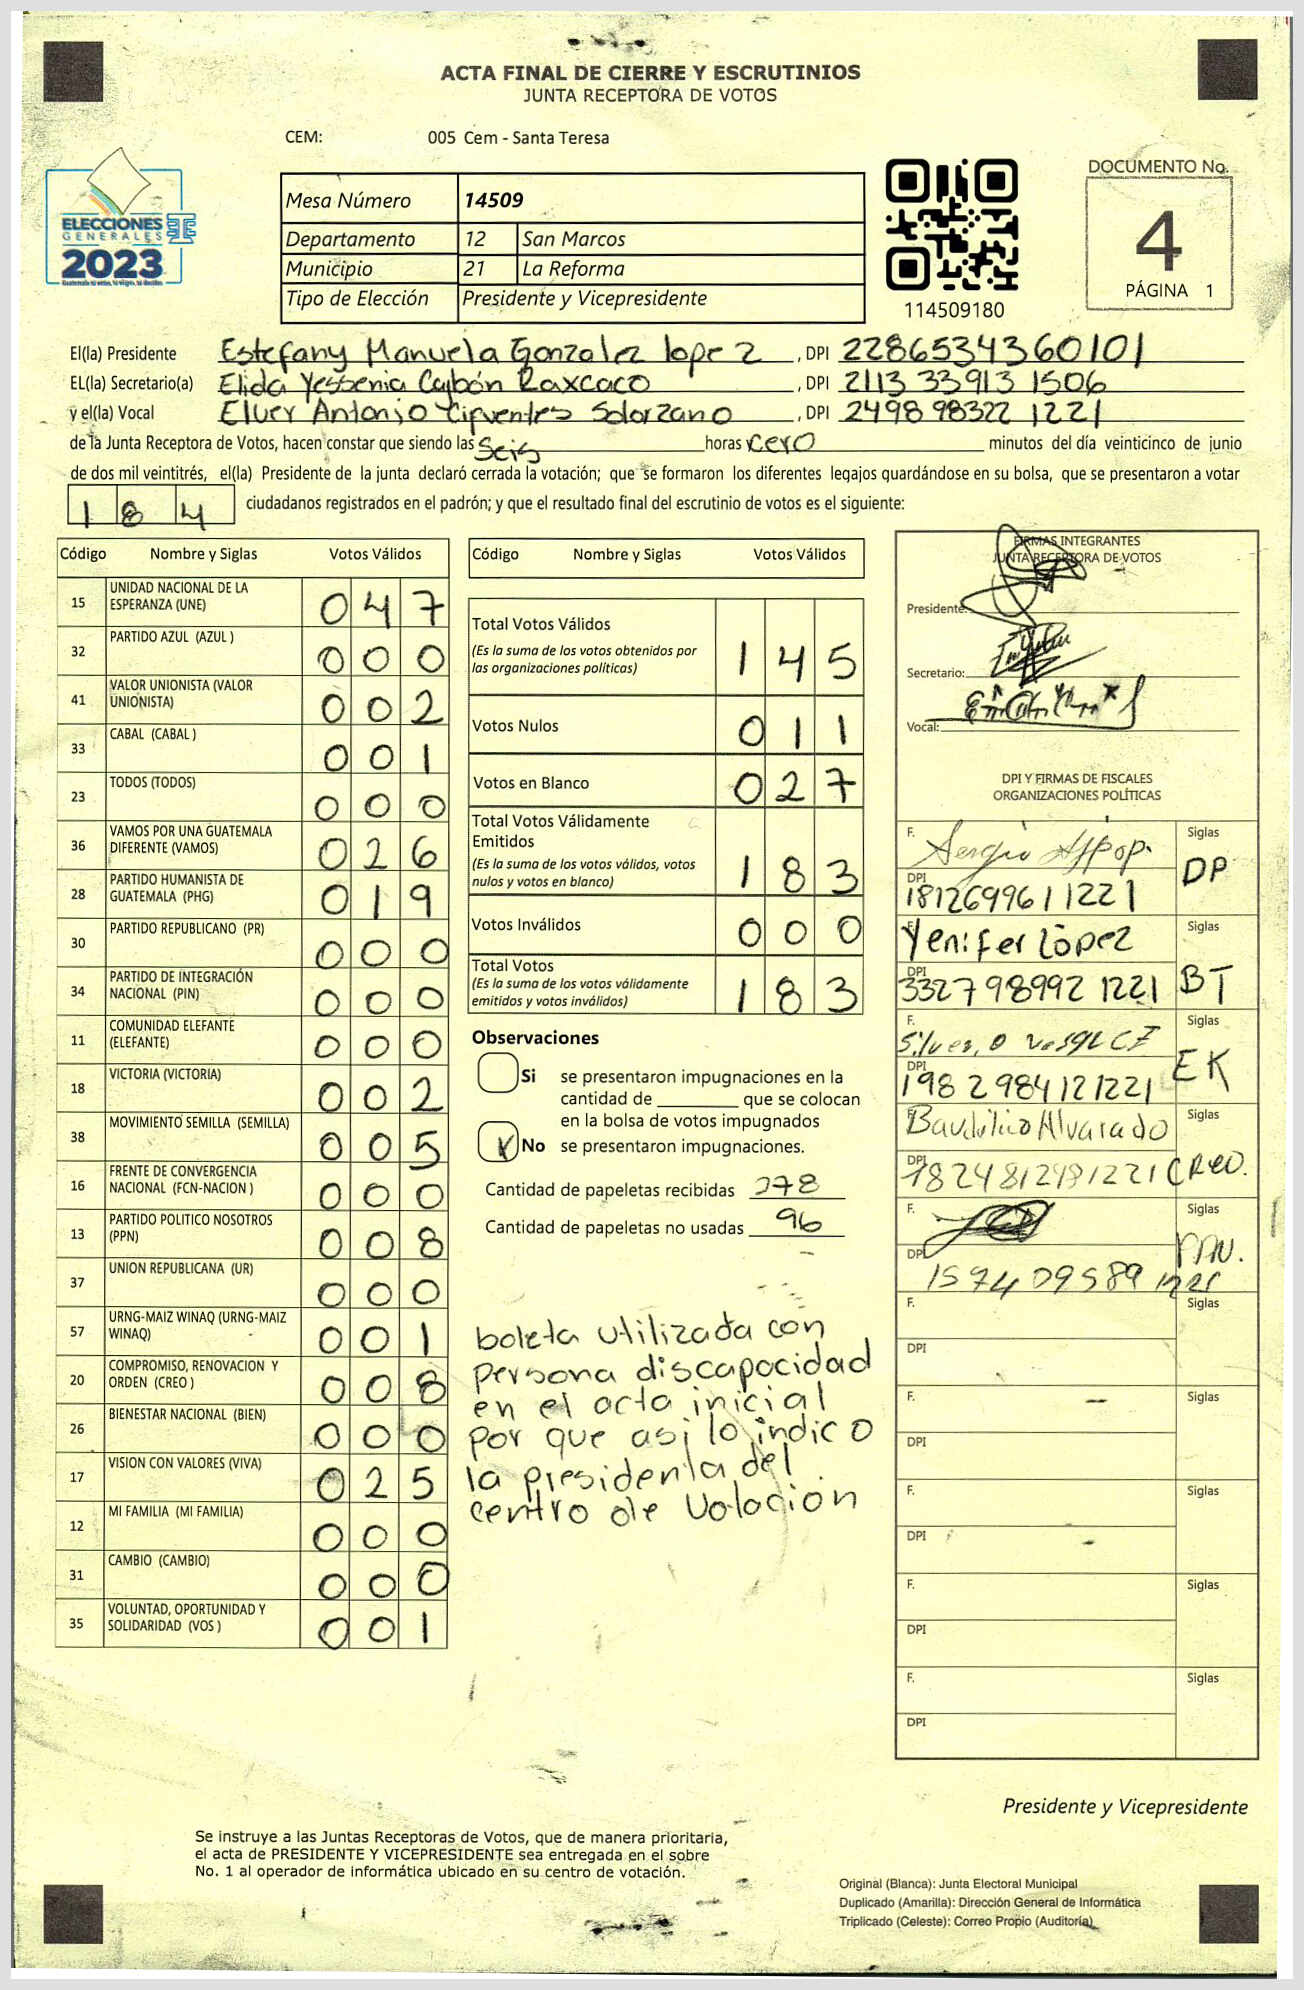 ACTA FINAL DE CIERRE Y ESCRUTINIOS
JUNTA RECEPTORA DE VOTOS
CEM: 005 Cem - Santa Teresa
ELECCIONES
GENERALES
2023
Mesa Número 14509
Departamento 12 San Marcos
Municipio 21 La Reforma
Tipo de Elección Presidente y Vicepresidente
114509180
DOCUMENTO No.
4
PÁGINA 1
El(la) Presidente Estefany Manuela Gonzalez lopez , DPI 2286534360101
EL(la) Secretario(a) Elida Yessenia Cajbón Raxcaco , DPI 2113 33913 1506
y el(la) Vocal Elver Antonio Cifventes Solorzano , DPI 2498 98322 1221
de la Junta Receptora de Votos, hacen constar que siendo las Seis horas cero minutos del día veinticinco de junio
de dos mil veintitrés, el(la) Presidente de la junta declaró cerrada la votación; que se formaron los diferentes legajos guardándose en su bolsa, que se presentaron a votar
1 8 4 ciudadanos registrados en el padrón; y que el resultado final del escrutinio de votos es el siguiente:
Código Nombre y Siglas Votos Válidos
15 UNIDAD NACIONAL DE LA ESPERANZA (UNE) 0 4 7
32 PARTIDO AZUL (AZUL ) 0 0 0
41 VALOR UNIONISTA (VALOR UNIONISTA) 0 0 2
33 CABAL (CABAL ) 0 0 1
23 TODOS (TODOS) 0 0 0
36 VAMOS POR UNA GUATEMALA DIFERENTE (VAMOS) 0 2 6
28 PARTIDO HUMANISTA DE GUATEMALA (PHG) 0 1 9
30 PARTIDO REPUBLICANO (PR) 0 0 0
34 PARTIDO DE INTEGRACIÓN NACIONAL (PIN) 0 0 0
11 COMUNIDAD ELEFANTE (ELEFANTE) 0 0 0
18 VICTORIA (VICTORIA) 0 0 2
38 MOVIMIENTO SEMILLA (SEMILLA) 0 0 5
16 FRENTE DE CONVERGENCIA NACIONAL (FCN-NACION ) 0 0 0
13 PARTIDO POLITICO NOSOTROS (PPN) 0 0 8
37 UNION REPUBLICANA (UR) 0 0 0
57 URNG-MAIZ WINAQ (URNG-MAIZ WINAQ) 0 0 1
20 COMPROMISO, RENOVACION Y ORDEN (CREO ) 0 0 8
26 BIENESTAR NACIONAL (BIEN) 0 0 0
17 VISION CON VALORES (VIVA) 0 2 5
12 MI FAMILIA (MI FAMILIA) 0 0 0
31 CAMBIO (CAMBIO) 0 0 0
35 VOLUNTAD, OPORTUNIDAD Y SOLIDARIDAD (VOS ) 0 0 1
Código Nombre y Siglas Votos Válidos
Total Votos Válidos
(Es la suma de los votos obtenidos por
las organizaciones políticas) 1 4 5
Votos Nulos 0 1 1
Votos en Blanco 0 2 7
Total Votos Válidamente
Emitidos
(Es la suma de los votos válidos, votos
nulos y votos en blanco) 1 8 3
Votos Inválidos 0 0 0
Total Votos
(Es la suma de los votos válidamente
emitidos y votos inválidos) 1 8 3
Observaciones
Si se presentaron impugnaciones en la
cantidad de ________ que se colocan
en la bolsa de votos impugnados
No se presentaron impugnaciones.
Cantidad de papeletas recibidas 278
Cantidad de papeletas no usadas 96
boleta utilizada con
persona discapacidad
en el acta inicial
por que asi lo indico
la presidenta del
centro de votacion
FIRMAS INTEGRANTES
JUNTA RECEPTORA DE VOTOS
Presidente:
Secretario:
Vocal:
DPI Y FIRMAS DE FISCALES
ORGANIZACIONES POLÍTICAS
F. Sergio Siglas
DPI 1812699611221 DP
F. Yenifer López Siglas
DPI 3327989921221 BT
F. Siglas
DPI 1982984121221 EK
F. Baudilio Alvarado Siglas
DPI 1824812481221 CREO.
F. Siglas
DPI 1574 09589 1221 PPN.
F. Siglas
DPI
F. Siglas
DPI
F. Siglas
DPI
F. Siglas
DPI
F. Siglas
DPI
Presidente y Vicepresidente
Se instruye a las Juntas Receptoras de Votos, que de manera prioritaria,
el acta de PRESIDENTE Y VICEPRESIDENTE sea entregada en el sobre
No. 1 al operador de informática ubicado en su centro de votación.
Original (Blanca): Junta Electoral Municipal
Duplicado (Amarilla): Dirección General de Informática
Triplicado (Celeste): Correo Propio (Auditoría)